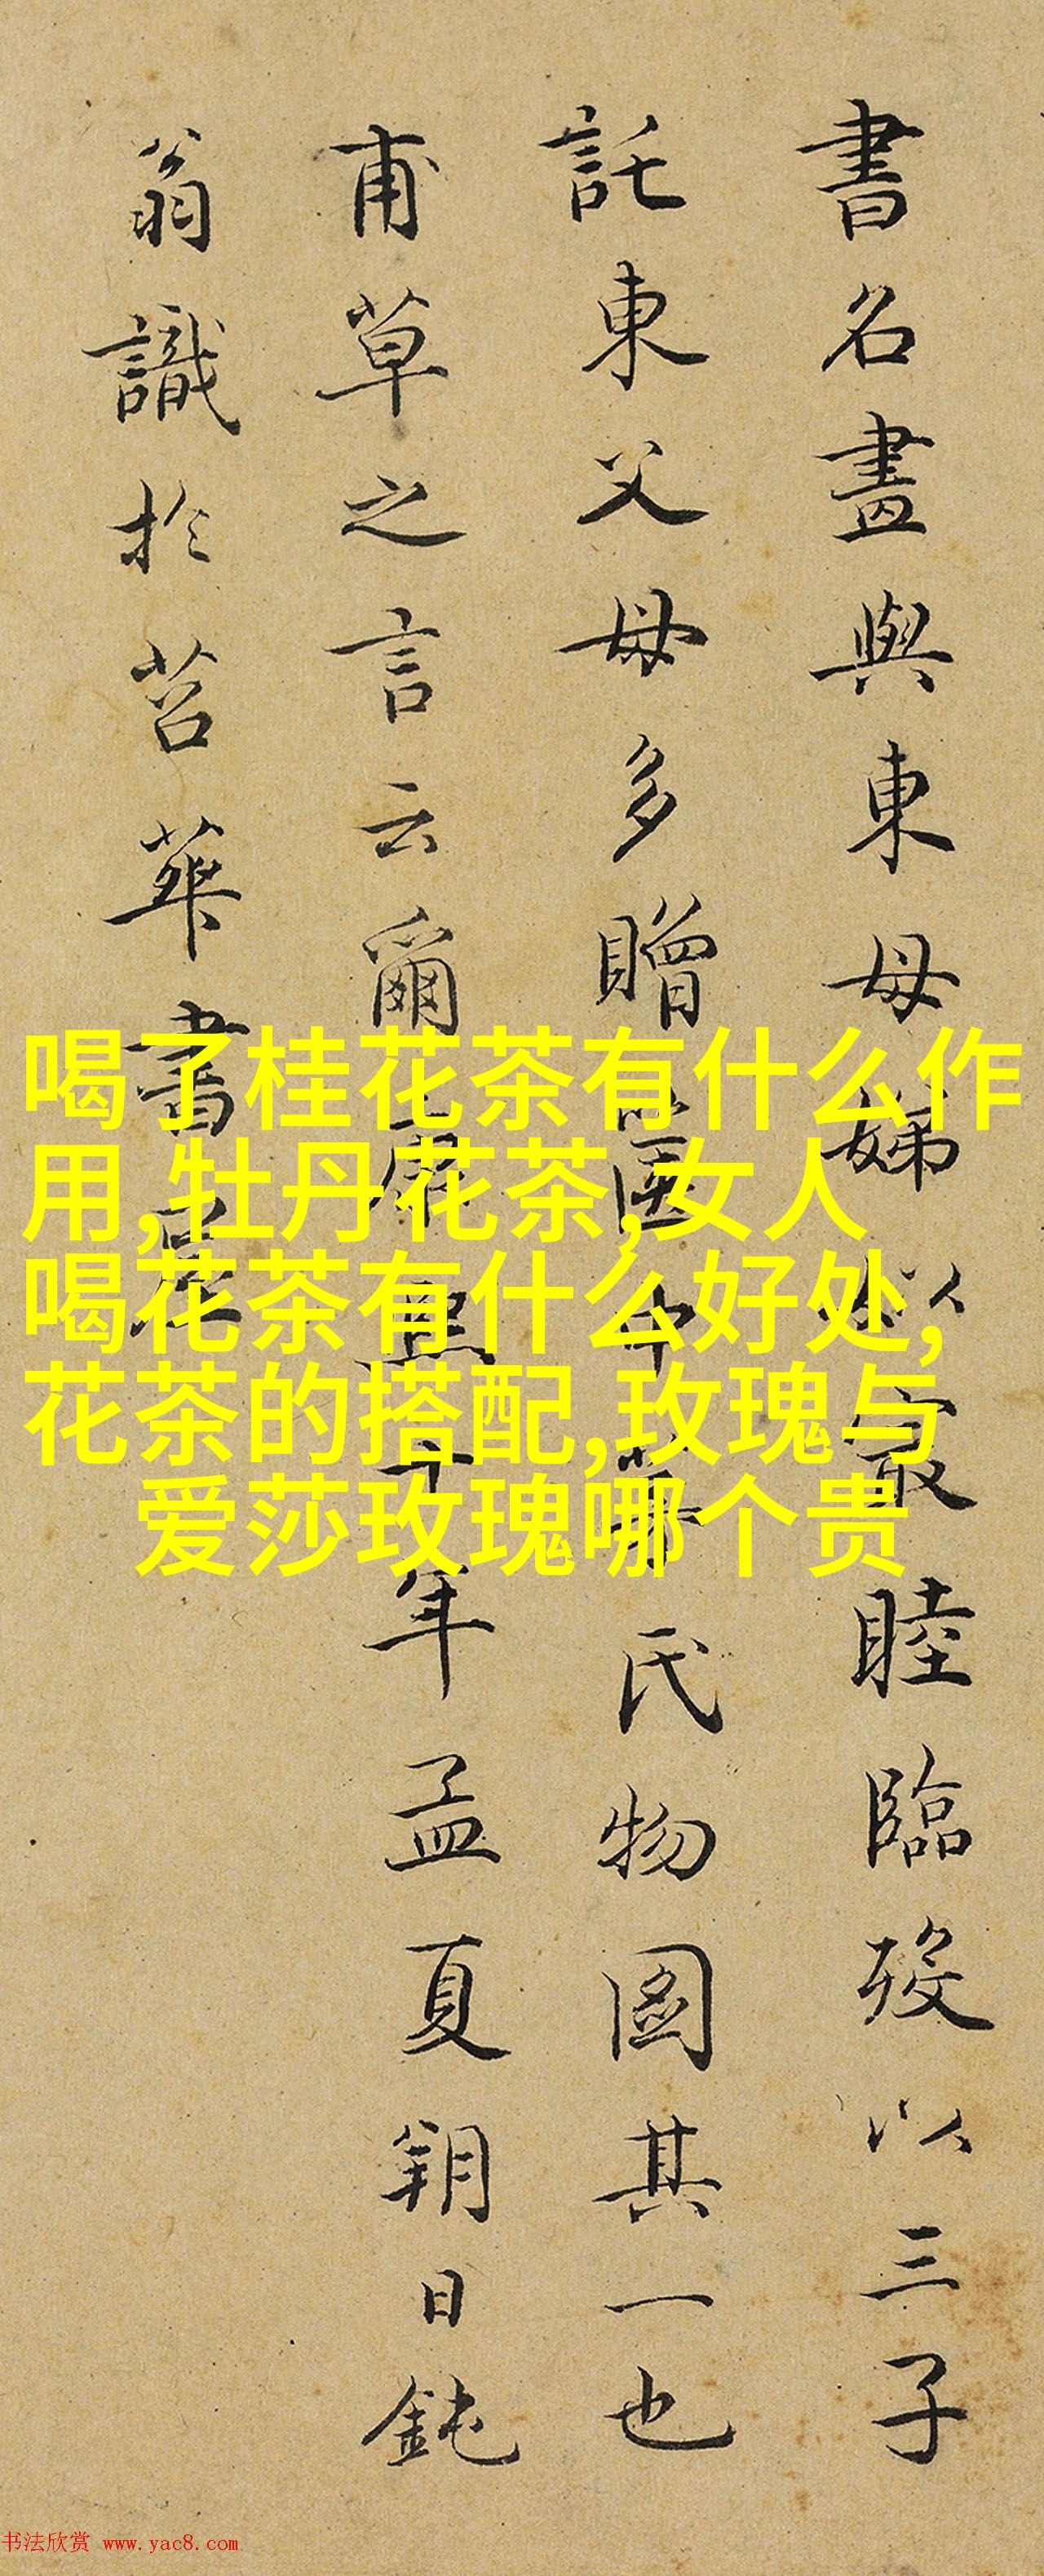 書名畫與東母娣姒最睦臨歿以三子
託東父母多贈中氏物圖其一也
甫草之言云爾康熙十年孟夏朔日鈍
翁識於苕華書屋
喝了桂花茶有什么作
用,牡丹花茶,女人
喝花茶有什么好处,
花茶的搭配,玫瑰与
爱莎玫瑰哪个贵
书法欣赏 www.yac8.com